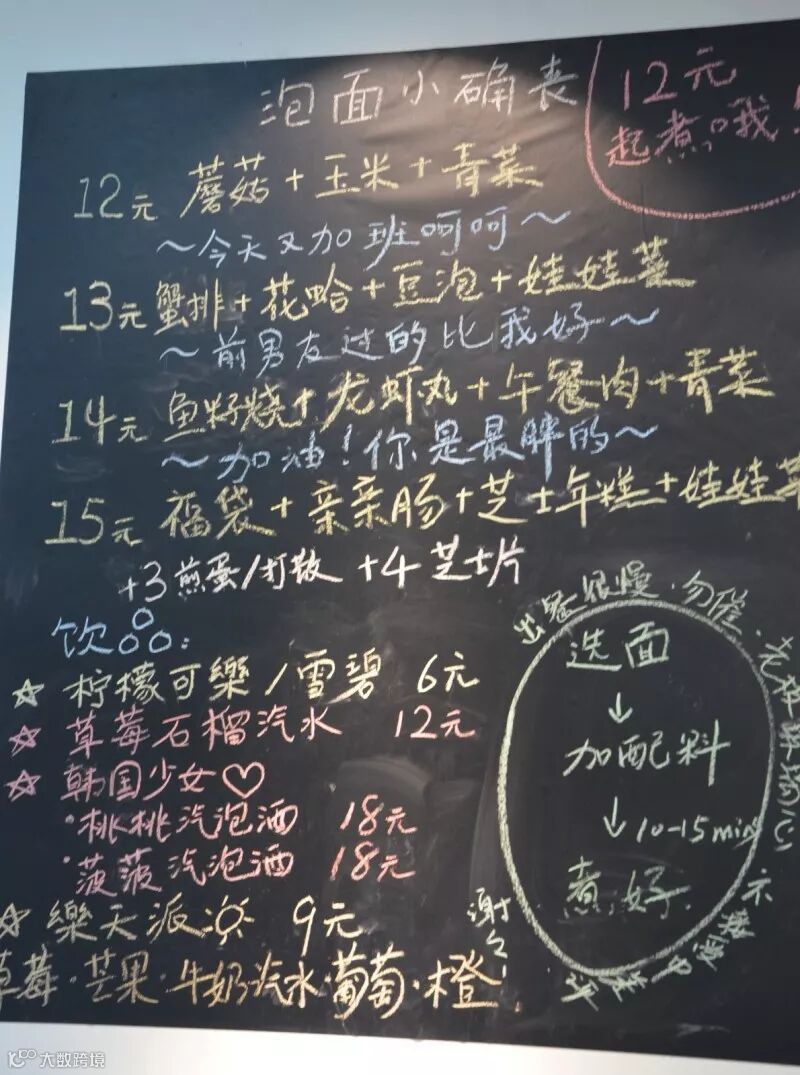 泡面小确丧
12元
起煮哦!
12元 蘑菇+玉米+青菜
~今天又加班呵呵~
13元 蟹排+花蛤+豆泡+娃娃菜
~前男友过的比我好~
14元 鱼籽烧+龙虾丸+午餐肉+青菜
~加油!你是最胖的~
15元 福袋+亲亲肠+芝士年糕+娃娃菜
+3煎蛋/打散 +4芝士片
饮品:
☆ 柠檬可樂/雪碧 6元
☆ 草莓石榴汽水 12元
☆ 韩国少女♡
·桃桃汽泡酒 18元
·菠菠汽泡酒 18元
☆ 樂天派 9元
草莓·芒果·牛奶汽水·葡萄·橙
出餐很慢·勿催·
选面
↓
加配料
↓ 10-15min
煮好
谢谢!
大数跨境